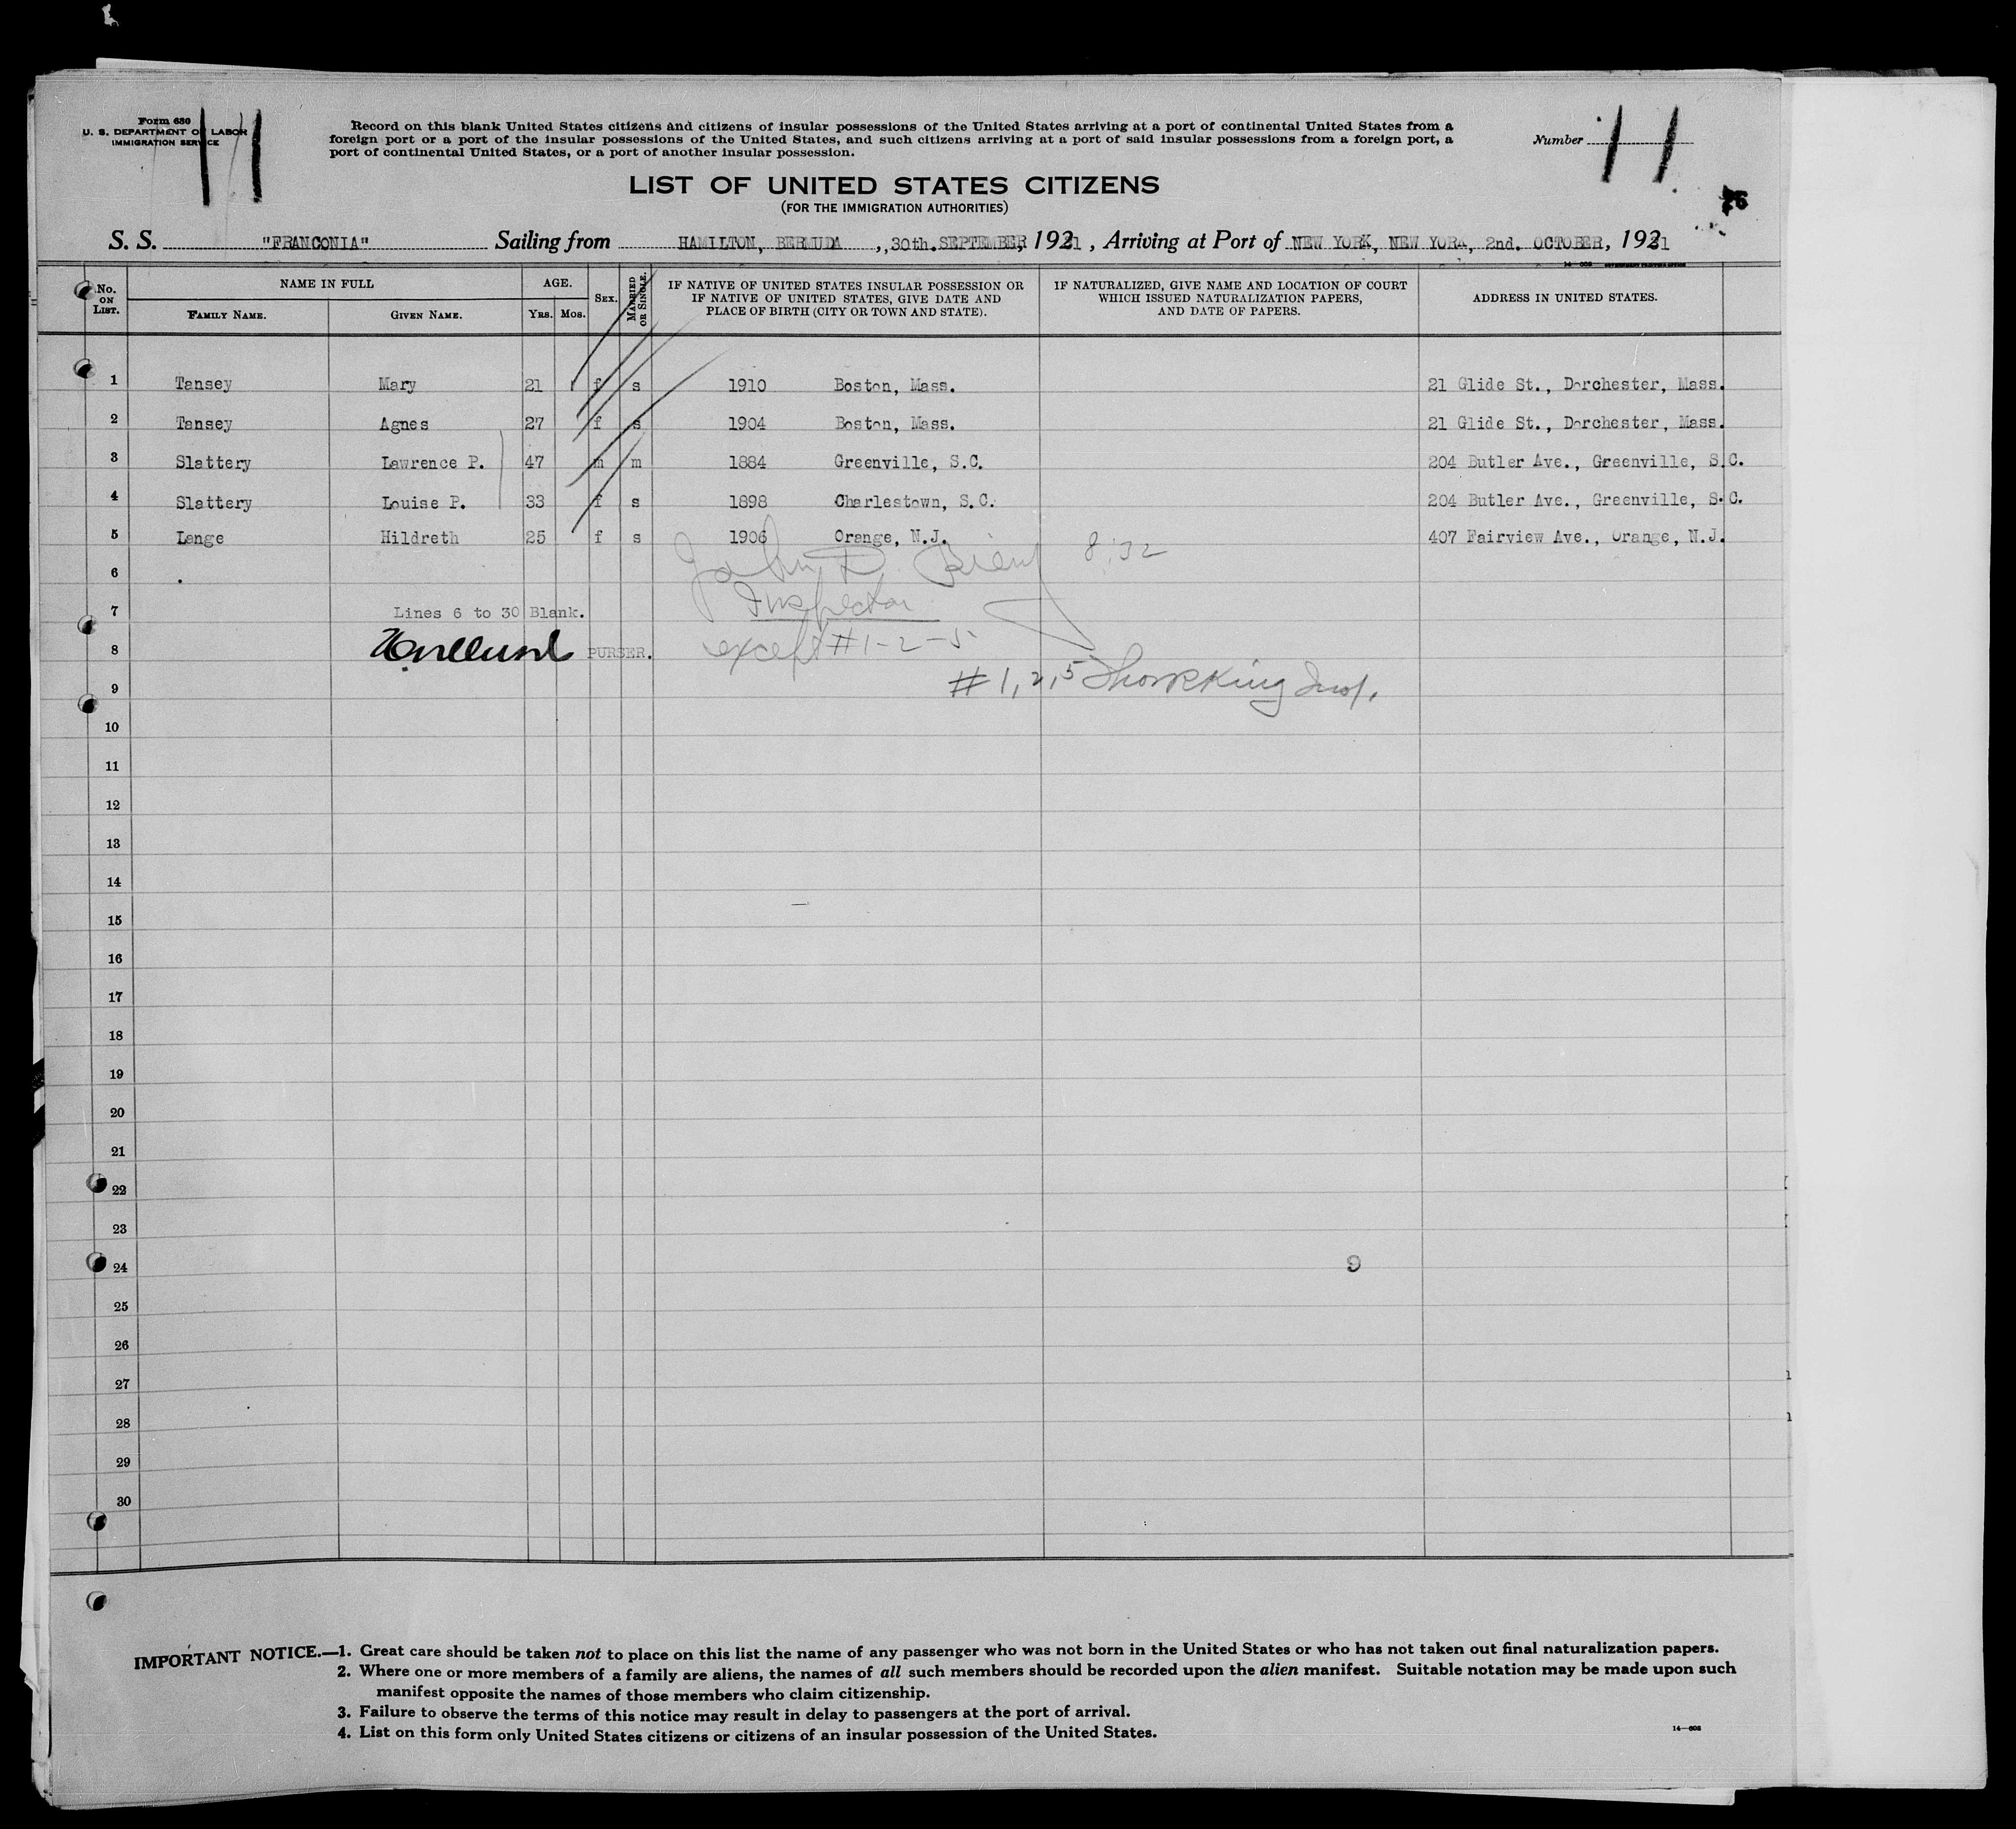 Form 630
U. S. DEPARTMENT OF LABOR
IMMIGRATION SERVICE
11
Record on this blank United States citizens and citizens of insular possessions of the United States arriving at a port of continental United States from a
foreign port or a port of the insular possessions of the United States, and such citizens arriving at a port of said insular possessions from a foreign port, a
port of continental United States, or a port of another insular possession.
Number 11
LIST OF UNITED STATES CITIZENS
(FOR THE IMMIGRATION AUTHORITIES)
S. S. "FRANCONIA" Sailing from HAMILTON, BERMUDA , 30th. SEPTEMBER, 1931, Arriving at Port of NEW YORK, NEW YORK, 2nd. OCTOBER, 1931
No. ON LIST. NAME IN FULL FAMILY NAME. GIVEN NAME. AGE. YRS. MOS. SEX. MARRIED OR SINGLE. IF NATIVE OF UNITED STATES INSULAR POSSESSION OR IF NATIVE OF UNITED STATES, GIVE DATE AND PLACE OF BIRTH (CITY OR TOWN AND STATE). IF NATURALIZED, GIVE NAME AND LOCATION OF COURT WHICH ISSUED NATURALIZATION PAPERS, AND DATE OF PAPERS. ADDRESS IN UNITED STATES.
1 Tansey Mary 21 f s 1910 Boston, Mass. 21 Glide St., Dorchester, Mass.
2 Tansey Agnes 27 f s 1904 Boston, Mass. 21 Glide St., Dorchester, Mass.
3 Slattery Lawrence P. 47 m m 1884 Greenville, S.C. 204 Butler Ave., Greenville, S.C.
4 Slattery Louise P. 33 f s 1898 Charlestown, S.C. 204 Butler Ave., Greenville, S.C.
5 Lange Hildreth 25 f s 1906 Orange, N.J. 407 Fairview Ave., Orange, N.J.
6 John D. 8:32
7 Lines 6 to 30 Blank. Inspector
8 PURSER. except #1-2-5
9 #1,2,5 Insp.
10
11
12
13
14
15
16
17
18
19
20
21
22
23
24 9
25
26
27
28
29
30
IMPORTANT NOTICE.—1. Great care should be taken not to place on this list the name of any passenger who was not born in the United States or who has not taken out final naturalization papers.
2. Where one or more members of a family are aliens, the names of all such members should be recorded upon the alien manifest. Suitable notation may be made upon such
manifest opposite the names of those members who claim citizenship.
3. Failure to observe the terms of this notice may result in delay to passengers at the port of arrival.
4. List on this form only United States citizens or citizens of an insular possession of the United States.
14—608